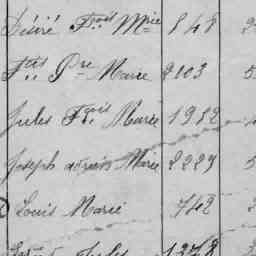 Désiré Fçois Mie 848 2
Fçis Pre Marie 2103 5
Jules Fçois Marie 1982
Joseph adrien Marie 2229 5
Louis Marie 742 2
Jules 1278 3